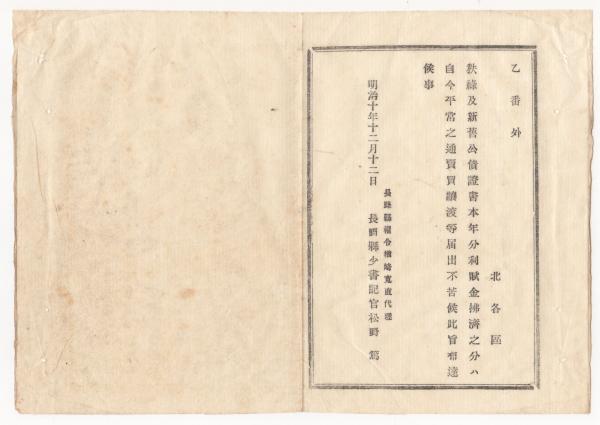 乙番外
北各區
秩祿及新舊公債證書本年分利賦金拂濟之分ハ
自今平常之通賣買讓渡等届出不苦候此旨布達
候事
明治十年十二月十二日
長野縣權令楢崎寛直代理
長野縣少書記官松野 篤